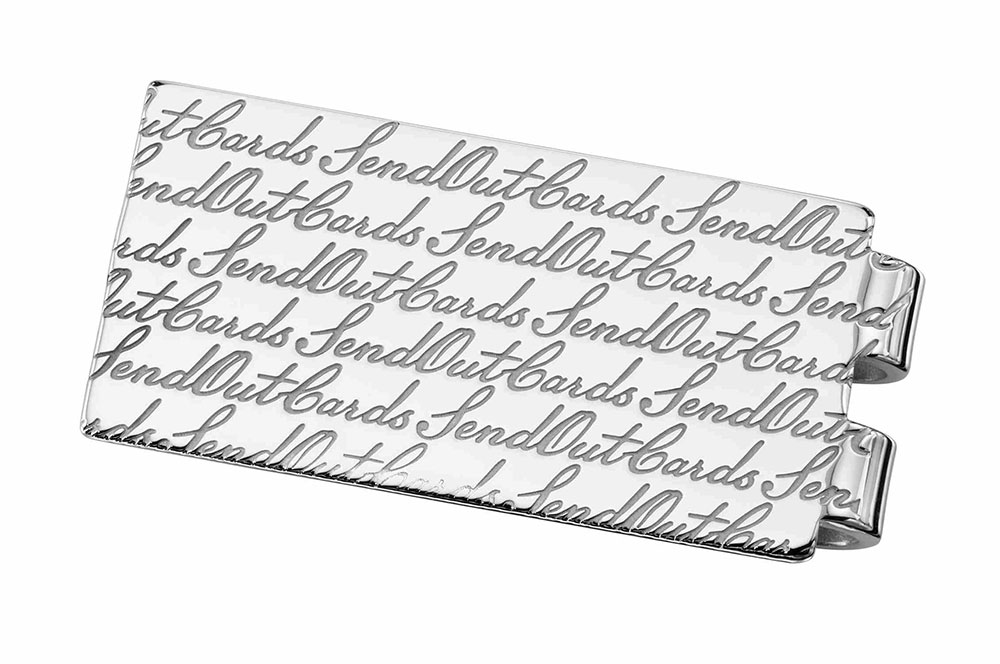 utCards SendOutCards SendOut
endOutCards SendOutCards Send
rds SendOutCards SendOutCard
OutCards SendOutCards SendOut
SendOutCards SendOutCards Sen
rds SendOutCards SendOutCards